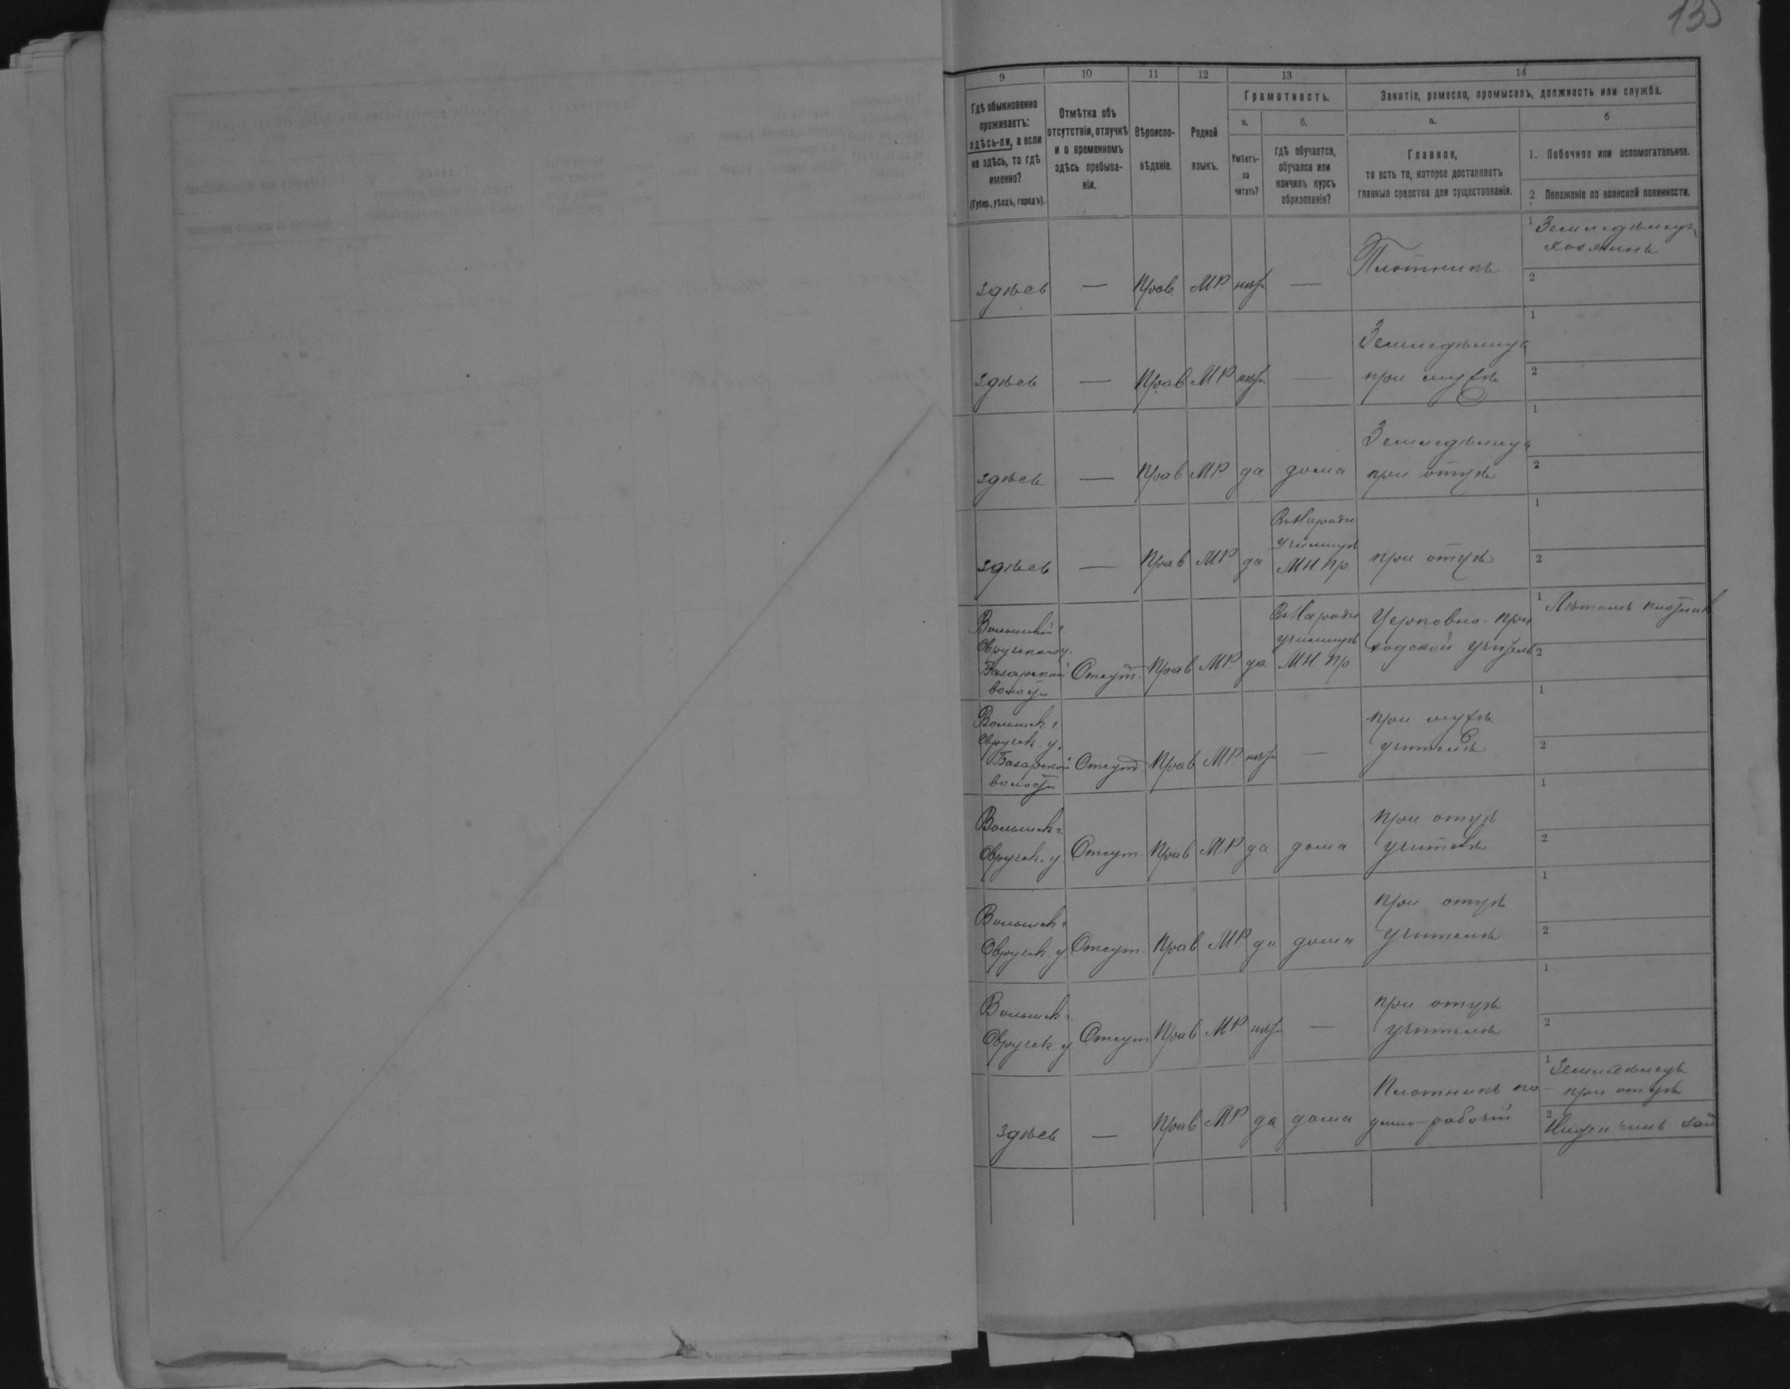 135
9 10 11 12 13 14
Гдѣ обыкновенно
проживаетъ:
здѣсь-ли, а если
не здѣсь, то гдѣ
именно?
(Губер., уѣздъ, городъ).
Отмѣтка объ
отсутствіи, отлучкѣ
и о временномъ
здѣсь пребыва-
ніи.
Вѣроиспо-
вѣданіе.
Родной
языкъ.
Грамотность.
а.
Умѣетъ-
ли
читать?
б.
гдѣ обучается,
обучался или
кончилъ курсъ
образованія?
Занятіе, ремесло, промыселъ, должность или служба.
а.
Главное,
то есть то, которое доставляетъ
главныя средства для существованія.
б
1. Побочное или вспомогательное.
2 Положеніе по воинской повинности.
здѣсь — Прав МР нѣтъ — Плотникъ
1 Земледѣлецъ
хозяинъ
2
здѣсь — Прав МР нѣтъ —
Земледѣлица
при мужѣ
1
2
здѣсь — Прав МР да дома
Земледѣлица
при отцѣ
1
2
здѣсь — Прав МР да
Въ Народн
училищѣ
МН Пр
при отцѣ
1
2
Волынской г
Овручского у.
Базарской
волости
Отсут. Прав МР да
Въ Народн
училищѣ
МН Пр
Церковно-при
ходской учитель
1 Лѣтомъ плотник
2
Волынск г
Овручск. у.
Базарской
волости
Отсут. Прав МР нѣтъ —
при мужѣ
учителѣ
1
2
Волынск г
Овручск. у
Отсут. Прав МР да дома
при отцѣ
учителѣ
1
2
Волынск г
Овручск. у
Отсут. Прав МР да дома
при отцѣ
учителѣ
1
2
Волынск г
Овручск у
Отсут Прав МР нѣтъ —
при отцѣ
учителѣ
1
2
здѣсь — Прав МР да дома
Плотникъ по
рабочій
1 Земледѣлецъ
при отцѣ
2 Нижн чинъ зап